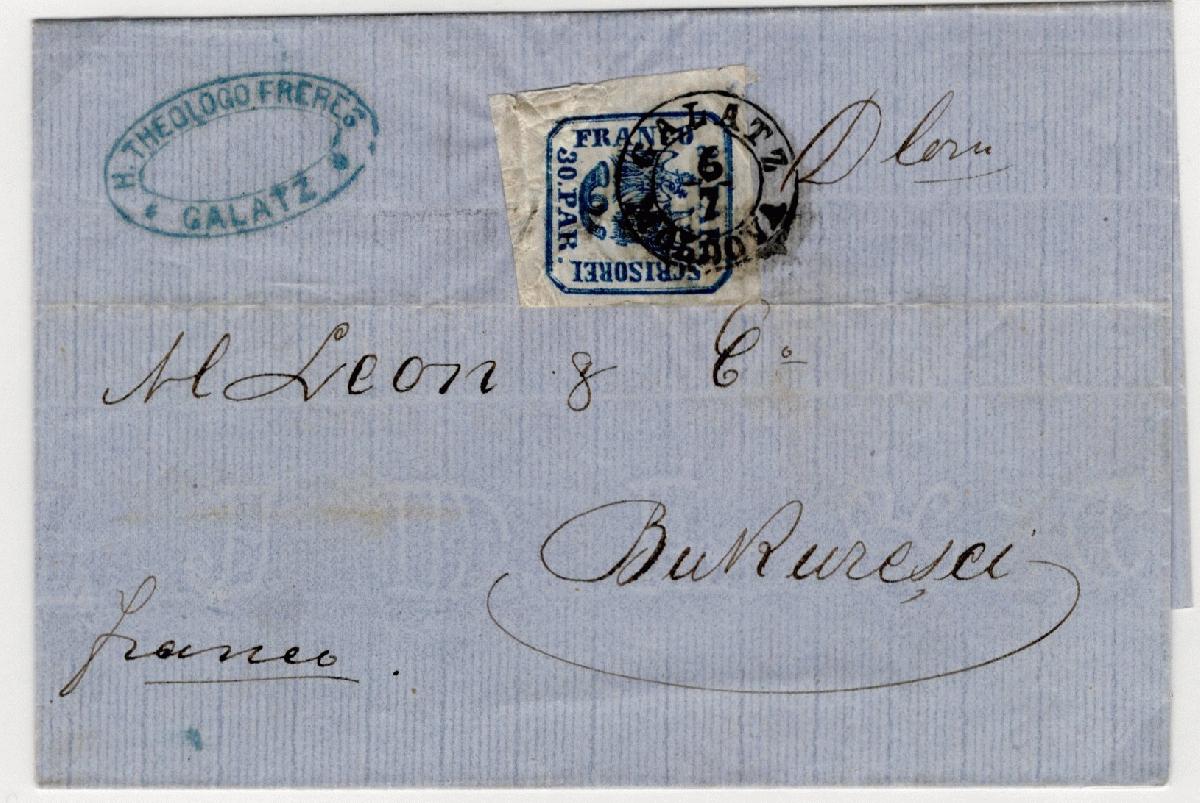 H. THEOLOGO FRERES
GALATZ
FRANCO
30. PAR.
SCRISOREI
GALATZ
6
7
MOLDOVA
M Leon & Cº
Bukuresci
franco.